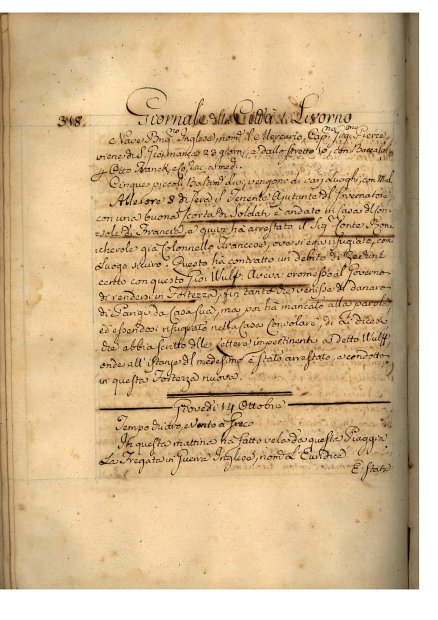 318. Giornale della Città di Livorno
e Nave Brig.no Inglese, nom.ª Il Mercurio, Cap.no Gio. Pierce,
viene di S. Gio: manca 29 giorni, e dallo stretto 10, con Baccalà
p Otto Franck, e Co, e ha a med.
Cinque piccoli Bastim.ti, vengono di varj Luoghi, con
Alle Lore 8 di sera il Tenente Ajutante del Governatore
con una buona scorta di Soldati è andato in Casa del Con=
sole di Francia, e quivi ha arrestato il Sig. Conte
già Colonnello Francese, ove si era rifugiato, come
Luogo sicuro. Questo ha contratto un debito di
con questo Gio: Wulf. Aveva promesso al Governo
di rendersi in Fortezza, fin tanto che venisse del danaro
di Casa sua, ma poi ha mancato alla parola
ed essendosi rifugiato nella Casa Consolare, di là dicesi
che abbia scritto delle Lettere impertinenti a detto Wulf,
onde all' istanze del medesimo è stato arrestato, e condotto
in questa Fortezza nuova.
Giovedì 14 Ottobre
Tempo e Vento a Greco
In questa mattina ha fatto vela da questa Piaggia
La Fregata da Guerra Inglese, nom.ª L'Euridice
È stato